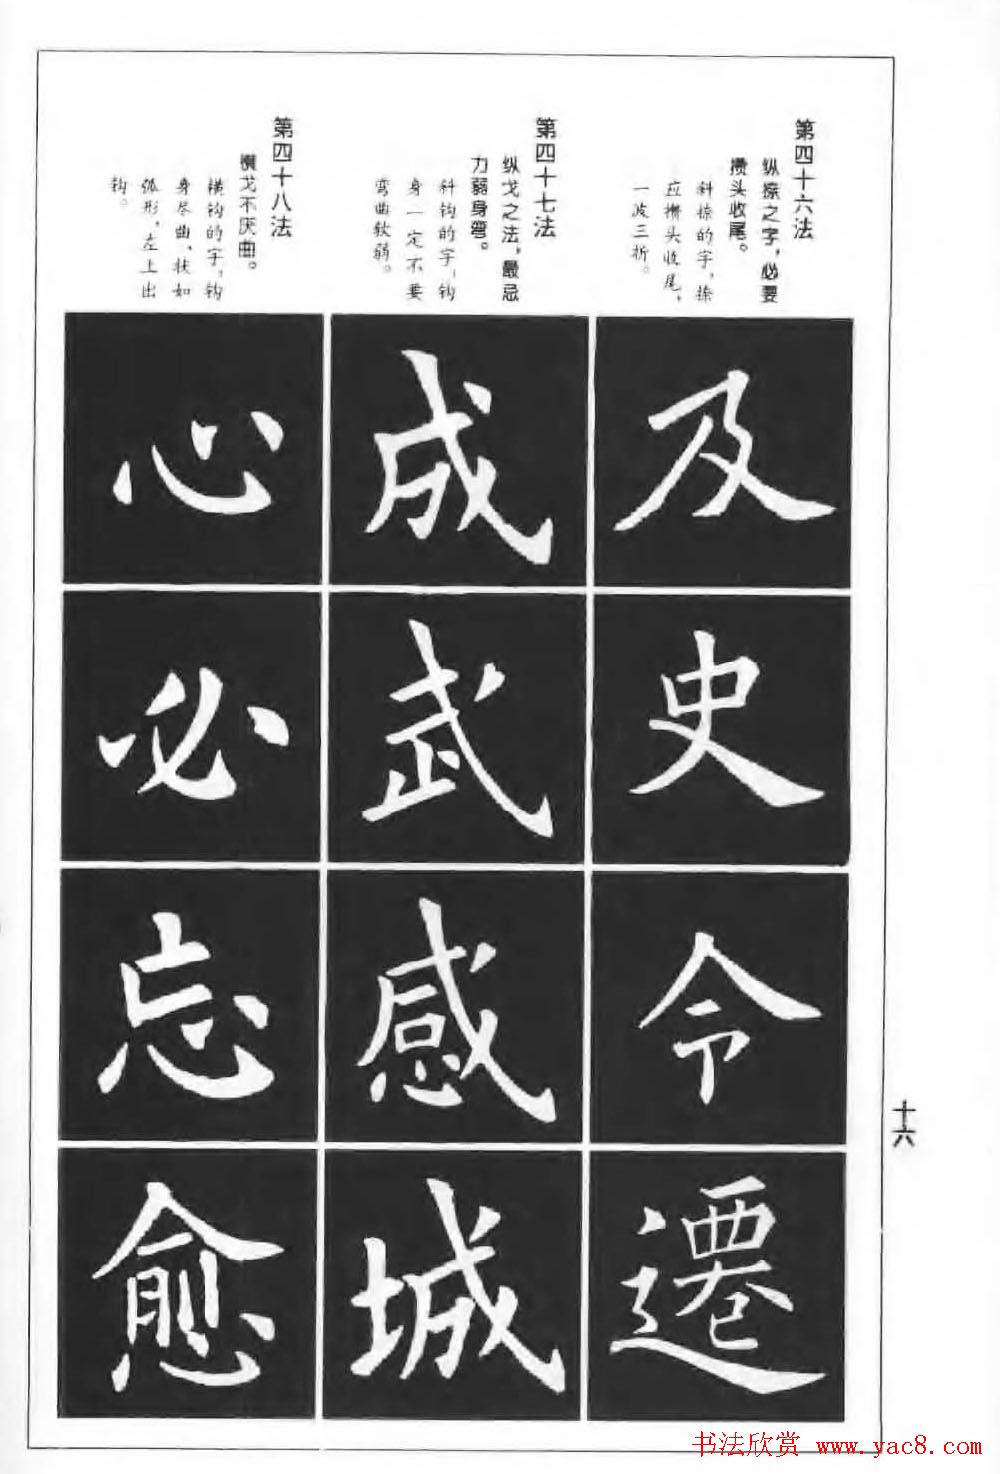 第四十六法
纵捺之字，必要
攒头收尾。
斜捺的字，捺
应攒头收尾，
一波三折。
及
史
令
遷
第四十七法
纵戈之法，最忌
力弱身弯。
斜钩的字，钩
身一定不要
弯曲软弱。
成
武
感
城
第四十八法
横戈不厌曲。
横钩的字，钩
身尽曲，状如
弧形，左上出
钩。
心
必
忘
愈
十六
书法欣赏 www.yac8.com